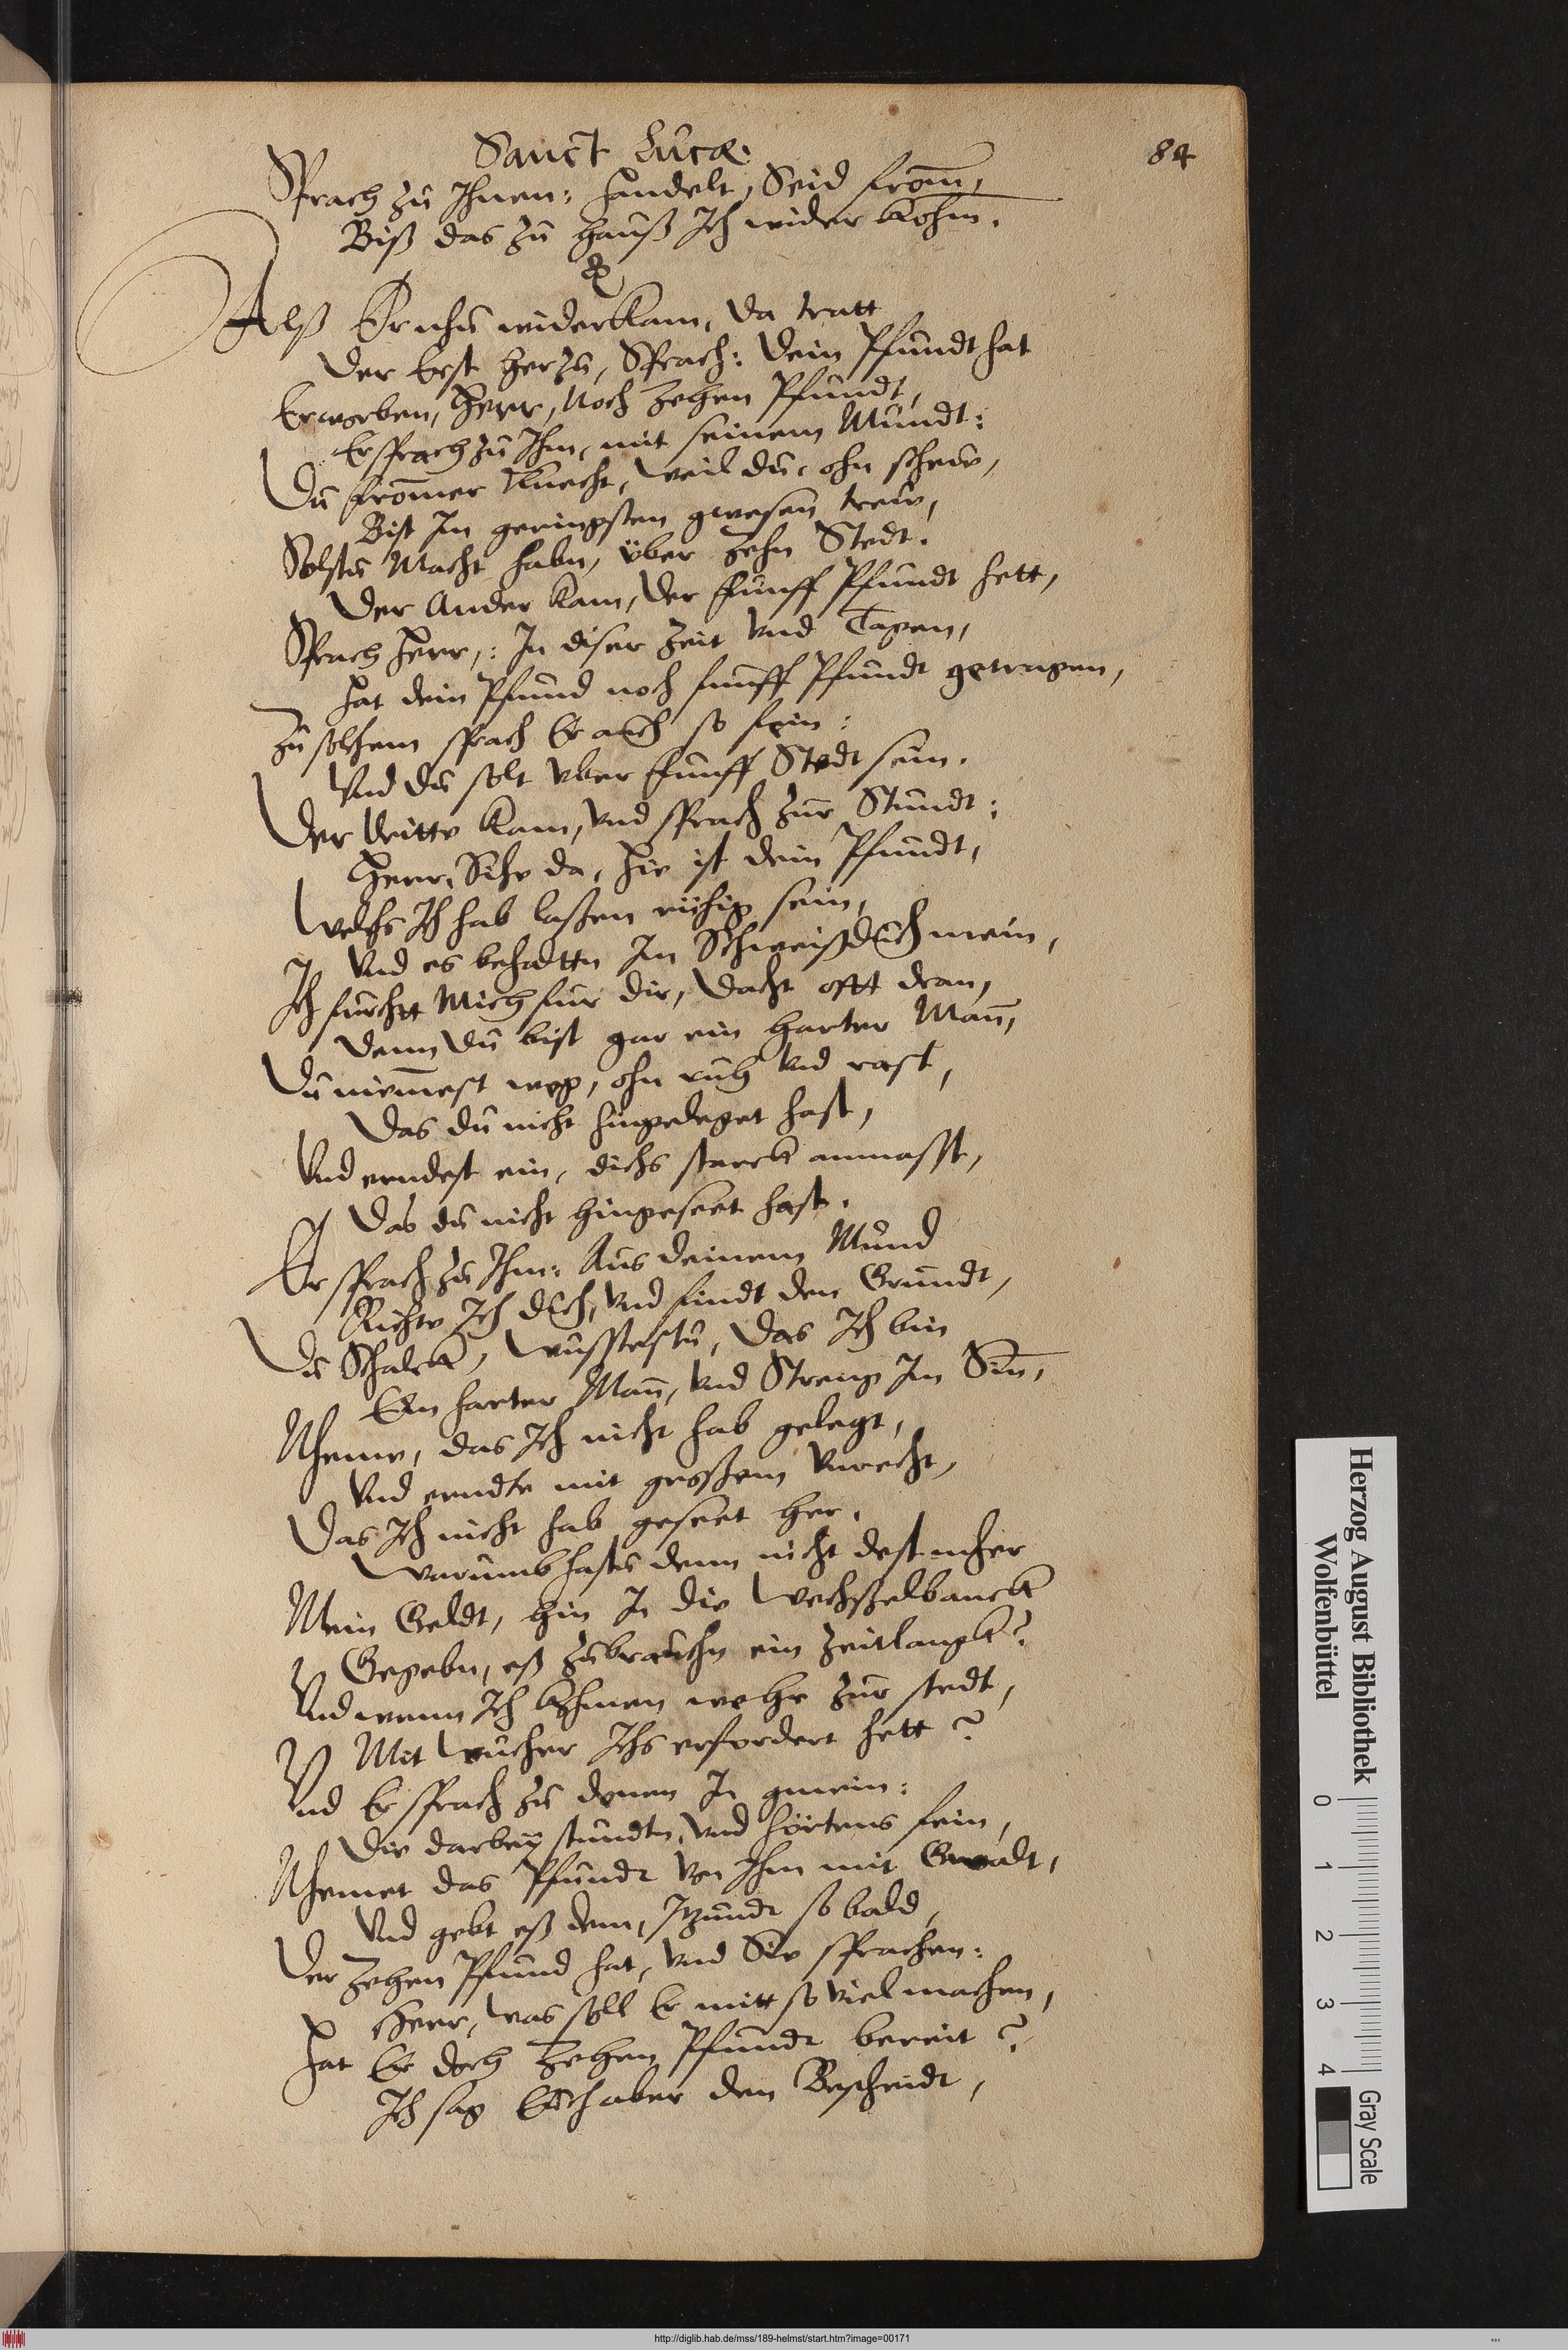 Sanct Lucæ.
84
Sprach zu Ihnen: handelt, Seid from̄,
Biß das zu hauß Ich wider kohm.
Alß Er nhu widerkam, da tratt
Der Erst herzu, Sprach: Dein Pfundt hat
Erworben, Herr, Noch Zehen Pfundt,
Er sprach zu Ihm, mit seinem Mundt:
Du from̄er Knecht, weil du, ohn schew,
Bist Im geringsten gwesen trew,
Solstu Macht habn, über Zehn Stedt.
Der Ander kam, der funff Pfundt hett,
Sprach Herr,: In diser Zeit und Tagen,
Hat dein Pfund noch funff Pfundt getragen,
Zu solchem sprach Er auch so fein:
Und du solt uber funff Stedt sein.
Der Dritte kam, und sprach zur Stundt:
Herr, Sihe da, hie ist dein Pfundt,
Welchs Ich hab laßen ruhig sein,
Und es behaltn Im Schweißduch mein,
Ich furcht Mich fur dir, dacht offt dran,
Denn du bist gar ein harter Man̄,
Du niem̄est weg, ohn ruh und rast,
Das du nicht hingeleget hast,
Und erndest ein, dichs starck anmasst,
Das du nicht hingeseet hast.
Er sprach zu Ihm: Aus deinem Mund
Richte Ich dich, und findt den Grundt,
Du Schalck, wusstestu, das Ich bin
Ein harter Man̄, und Streng Im Sin̄,
Nheme, das Ich nicht hab gelegt,
Und erndte mit großem Unrecht,
Das Ich nicht hab geseet her.
Warumb hastu denn nicht dest mher
Mein Geldt, hin In die Wechßelbanck
Gegebn, eß zubrauchn ein Zeitlangk?
Und wenn Ich kohmen wehr zur stedt,
Mit Wucher Ichs erfordert hett?
Und Er sprach zu denen In gmein:
Die darbey stundtn, und hörtens fein,
Nhemet das Pfundt von Ihm mit Gwalt,
Und gebt eß dem, Itzundt so bald,
Der Zehen Pfund hat, und Sie sprachen:
Herr, was soll Er mitt so viel machen,
Hat Er doch Zehen Pfundt bereit?
Ich sag Euch aber den Bescheidt,
Herzog August Bibliothek
Wolfenbüttel
0 1 2 3 4
Gray Scale
http://diglib.hab.de/mss/189-helmst/start.htm?image=00171